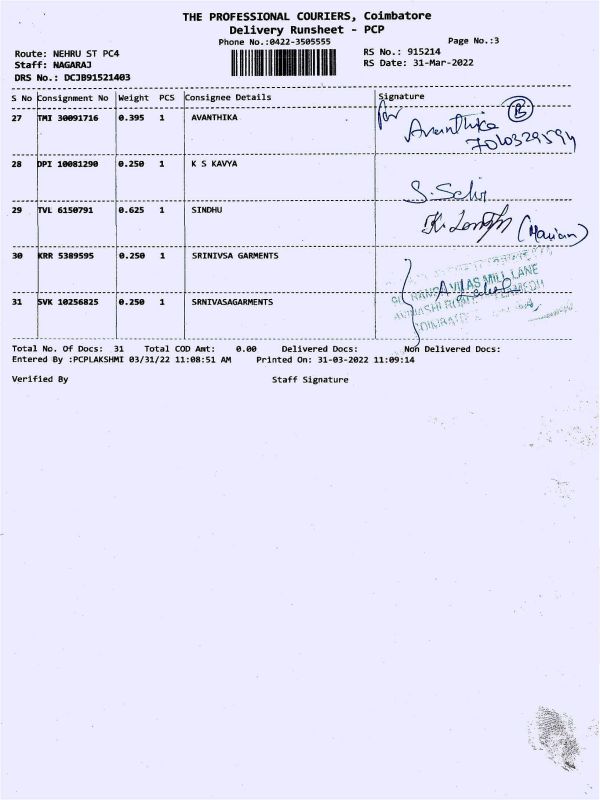 THE PROFESSIONAL COURIERS, Coimbatore
Delivery Runsheet - PCP
Phone No.:0422-3505555 Page No.:3
Route: NEHRU ST PC4 RS No.: 915214
Staff: NAGARAJ RS Date: 31-Mar-2022
DRS No.: DCJB91521403
S No Consignment No Weight PCS Consignee Details Signature
27 TMI 30091716 0.395 1 AVANTHIKA
for Avanthika B
28 DPI 10081290 0.250 1 K S KAVYA
29 TVL 6150791 0.625 1 SINDHU
(Marian)
30 KRR 5389595 0.250 1 SRINIVSA GARMENTS
VILAS MILL LANE
31 SVK 10256825 0.250 1 SRNIVASAGARMENTS
Total No. Of Docs: 31 Total COD Amt: 0.00 Delivered Docs: Non Delivered Docs:
Entered By :PCPLAKSHMI 03/31/22 11:08:51 AM Printed On: 31-03-2022 11:09:14
Verified By Staff Signature